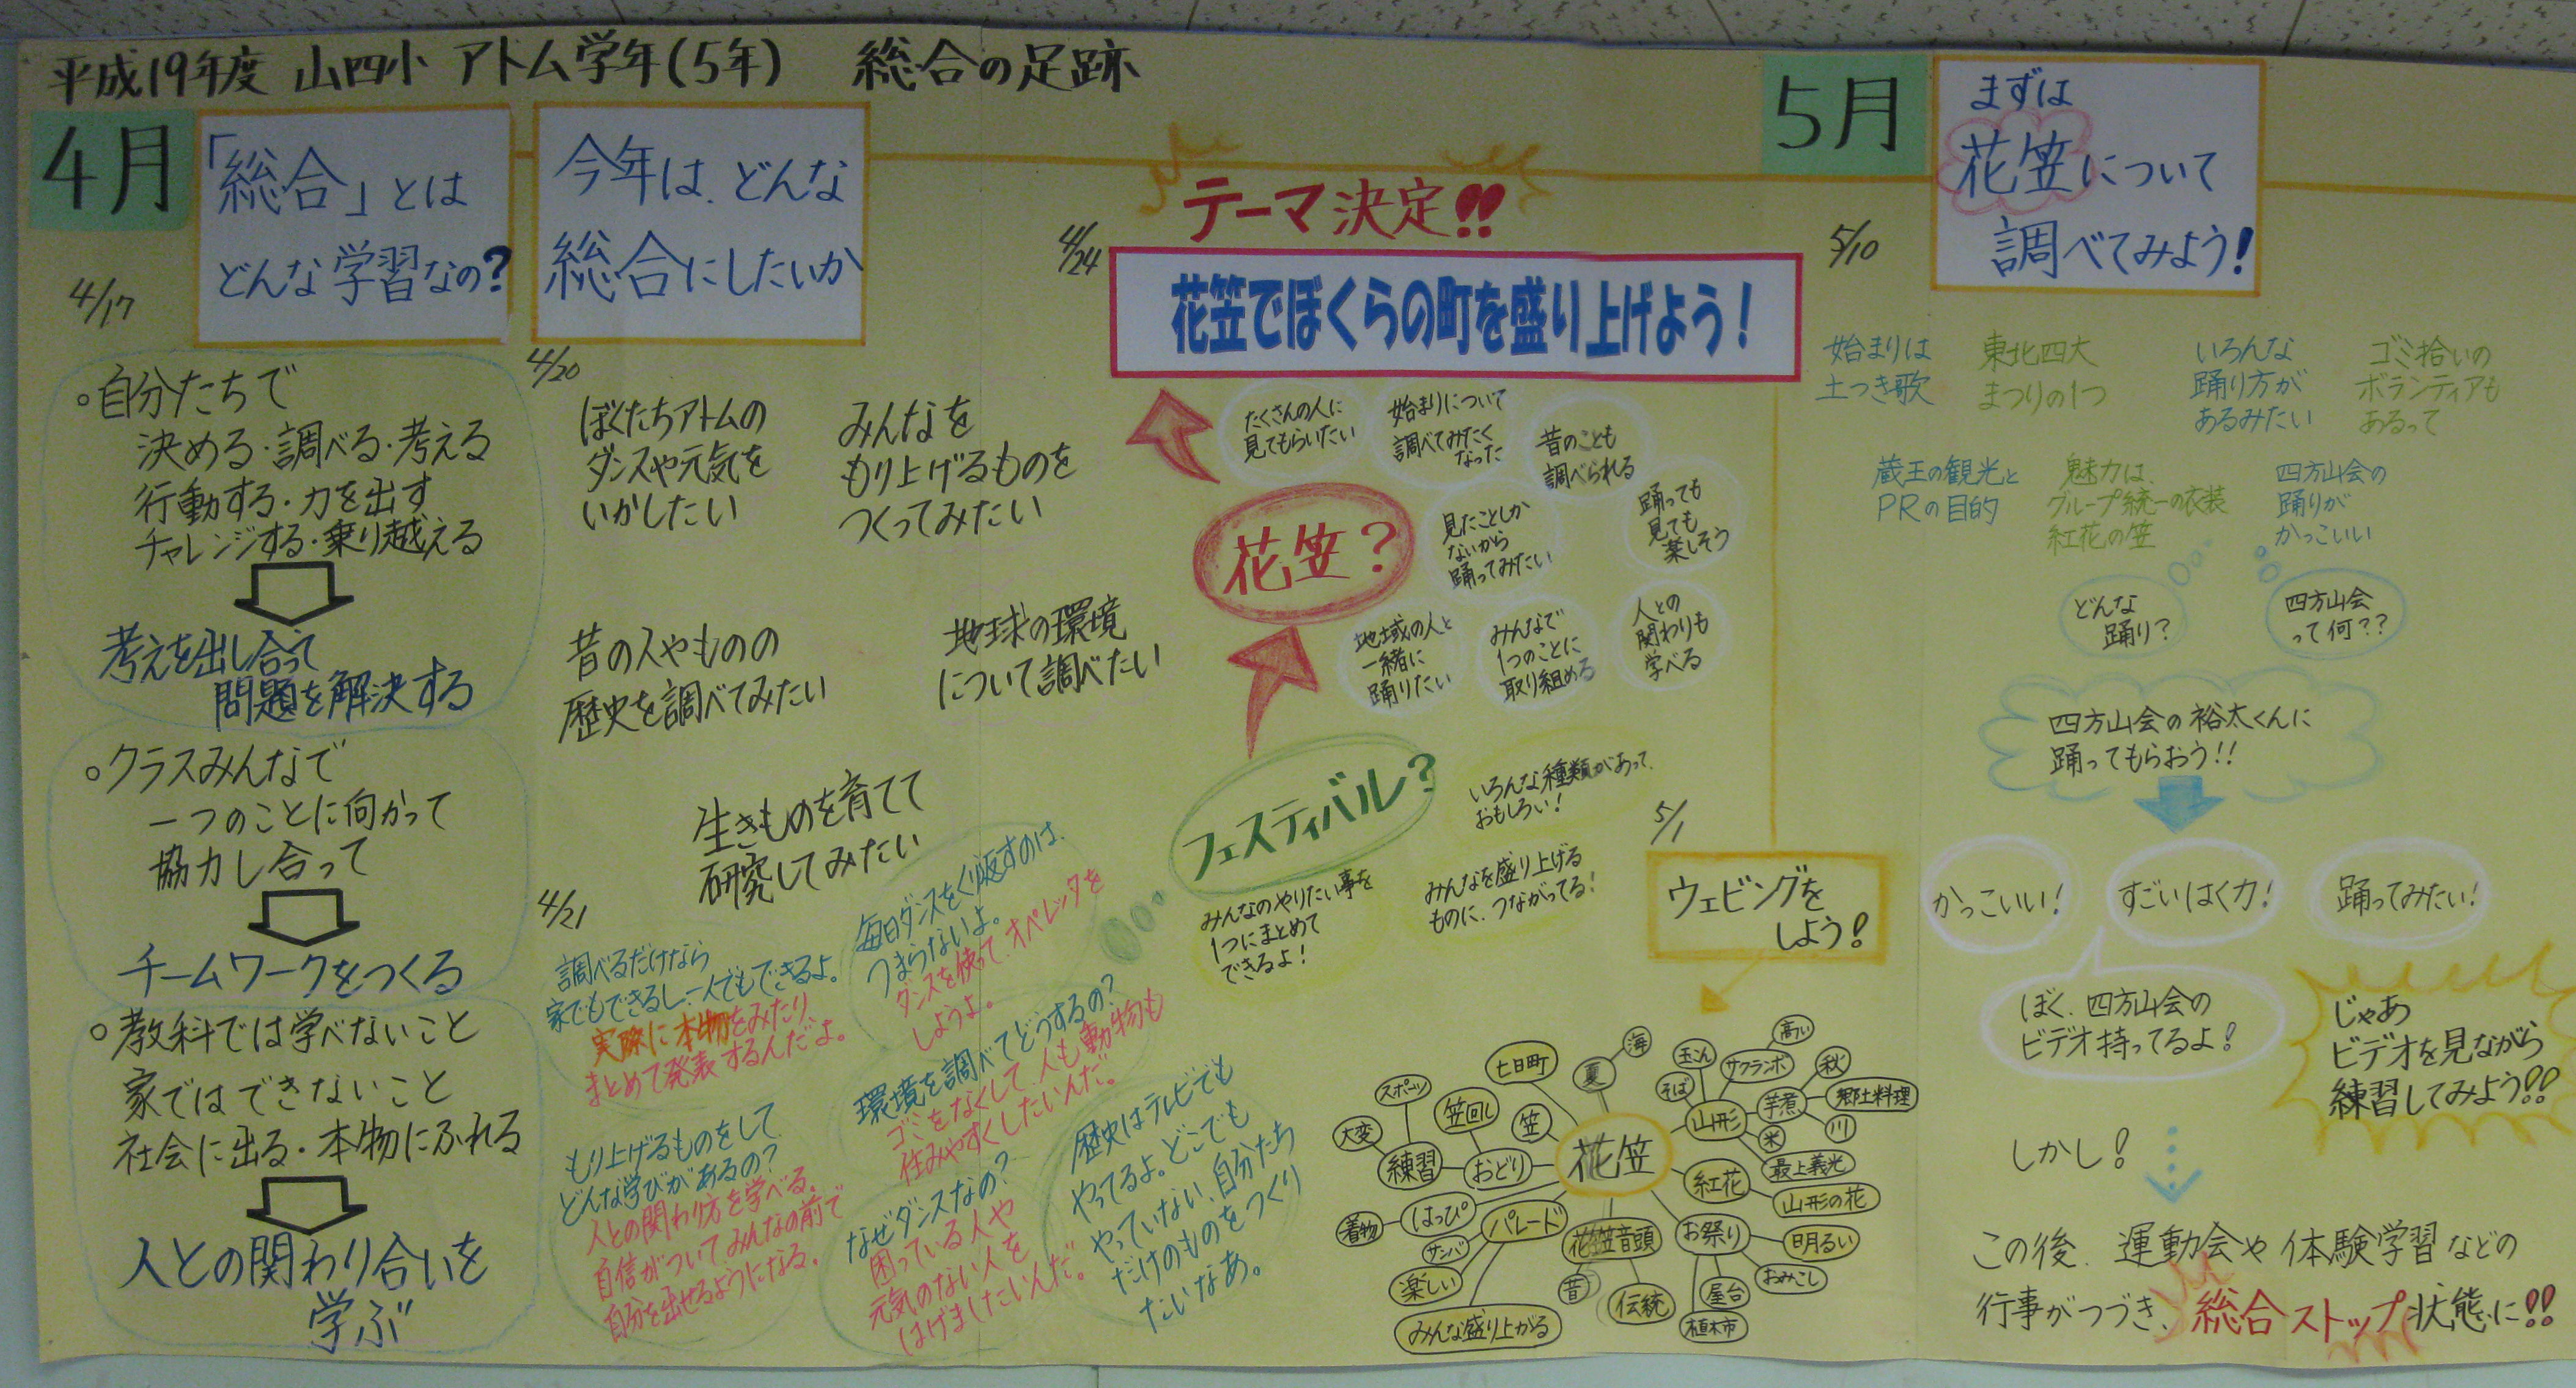 平成19年度 山四小 アトム学年(5年) 総合の足跡
4月
「総合」とは
どんな学習なの?
4/17
・自分たちで
決める・調べる・考える
行動する・力を出す
チャレンジする・乗り越える
考えを出し合って
問題を解決する
・クラスみんなで
一つのことに向かって
協力し合って
チームワークをつくる
・教科では学べないこと
家ではできないこと
社会に出る・本物にふれる
人との関わり合いを
学ぶ
今年は、どんな
総合にしたいか
4/20
ぼくたちアトムの
ダンスや元気を
いかしたい
みんなを
もり上げるものを
つくってみたい
昔の人やものの
歴史を調べてみたい
地球の環境
について調べたい
生きものを育てて
研究してみたい
4/21
調べるだけなら
家でもできるし、一人でもできるよ。
実際に本物をみたり、
まとめて発表するんだよ。
毎日ダンスをくり返すのは、
つまらないよ。
ダンスを使って、オペレッタを
しようよ。
環境を調べてどうするの?
ゴミをなくして、人も動物も
住みやすくしたいんだ。
もり上げるものをして
どんな学びがあるの?
人との関わり方を学べる。
自信がついてみんなの前で
自分を出せるようになる。
なぜダンスなの?
困っている人や
元気のない人を
はげましたいんだ。
歴史はテレビでも
やってるよ。どこでも
やっていない、自分たち
だけのものをつくり
たいなあ。
4/24
テーマ決定!!
花笠でぼくらの町を盛り上げよう!
たくさんの人に
見てもらいたい
始まりについて
調べてみたく
なった
昔のことも
調べられる
花笠?
見たことしか
ないから
踊ってみたい
踊っても
見ても
楽しそう
地域の人と
一緒に
踊りたい
みんなで
1つのことに
取り組める
人との
関わりも
学べる
フェスティバル?
いろんな種類があって、
おもしろい!
みんなのやりたい事を
1つにまとめて
できるよ!
みんなを盛り上げる
ものに、つながってる!
5/1
ウェビングを
しよう!
花笠
夏
海
七日町
笠
笠回し
おどり
練習
スポーツ
大変
はっぴ
着物
パレード
サンバ
楽しい
みんな盛り上がる
花笠音頭
昔
伝統
お祭り
明るい
おみこし
屋台
植木市
紅花
山形の花
山形
玉こん
そば
サクランボ
高い
芋煮
秋
郷土料理
川
米
最上義光
5月
まずは
花笠について
調べてみよう!
5/10
始まりは
土つき歌
東北四大
まつりの1つ
いろんな
踊り方が
あるみたい
ゴミ拾いの
ボランティアも
あるって
蔵王の観光と
PRの目的
魅力は、
グループ統一の衣装
紅花の笠
四方山会の
踊りが
かっこいい
どんな
踊り?
四方山会
って何??
四方山会の裕太くんに
踊ってもらおう!!
かっこいい!
すごいはく力!
踊ってみたい!
ぼく、四方山会の
ビデオ持ってるよ!
じゃあ
ビデオを見ながら
練習してみよう!!
しかし!
この後、運動会や体験学習などの
行事がつづき、総合ストップ状態に!!